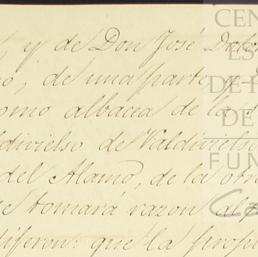 y de Don José
de una parte
omo albacea de la
de Valdivielso
del Alamo, de la otra
se tomará razon
dijeron: que la prop
CEN
ES
DE
DE
FUN